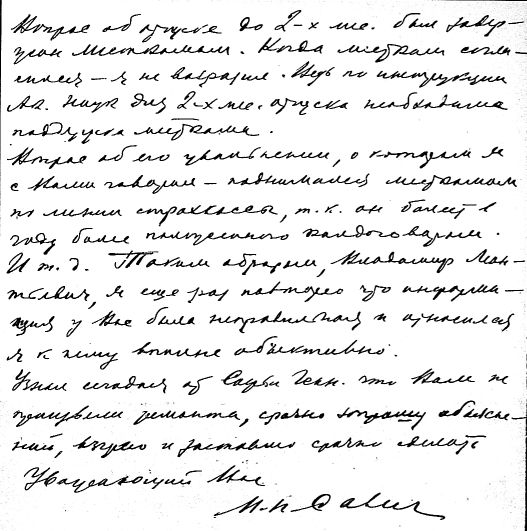 Вопрос об отпуске до 2-х ме. был завер-
шен месткомом. Когда местком согла-
сился — я не возразил. Ведь по инструкции
Ак. Наук для 2-х ме. отпуска необходима
поддержка месткома.
Вопрос об его увольнении, о котором я
с Вами говорил — поднимался месткомом
по линии страхкассы, т.к. он болел в
году более положенного колдоговором.
И т.д. Таким образом, Владимир Мат-
веевич, я еще раз повторяю что информа-
ция у Вас была неправильная и относился
я к нему вполне объективно.
Узнал сегодня от Софьи Ген. что Вам не
произвели ремонта, срочно запрошу объясне-
ний, и заставлю срочно сделать
Уважающий Вас